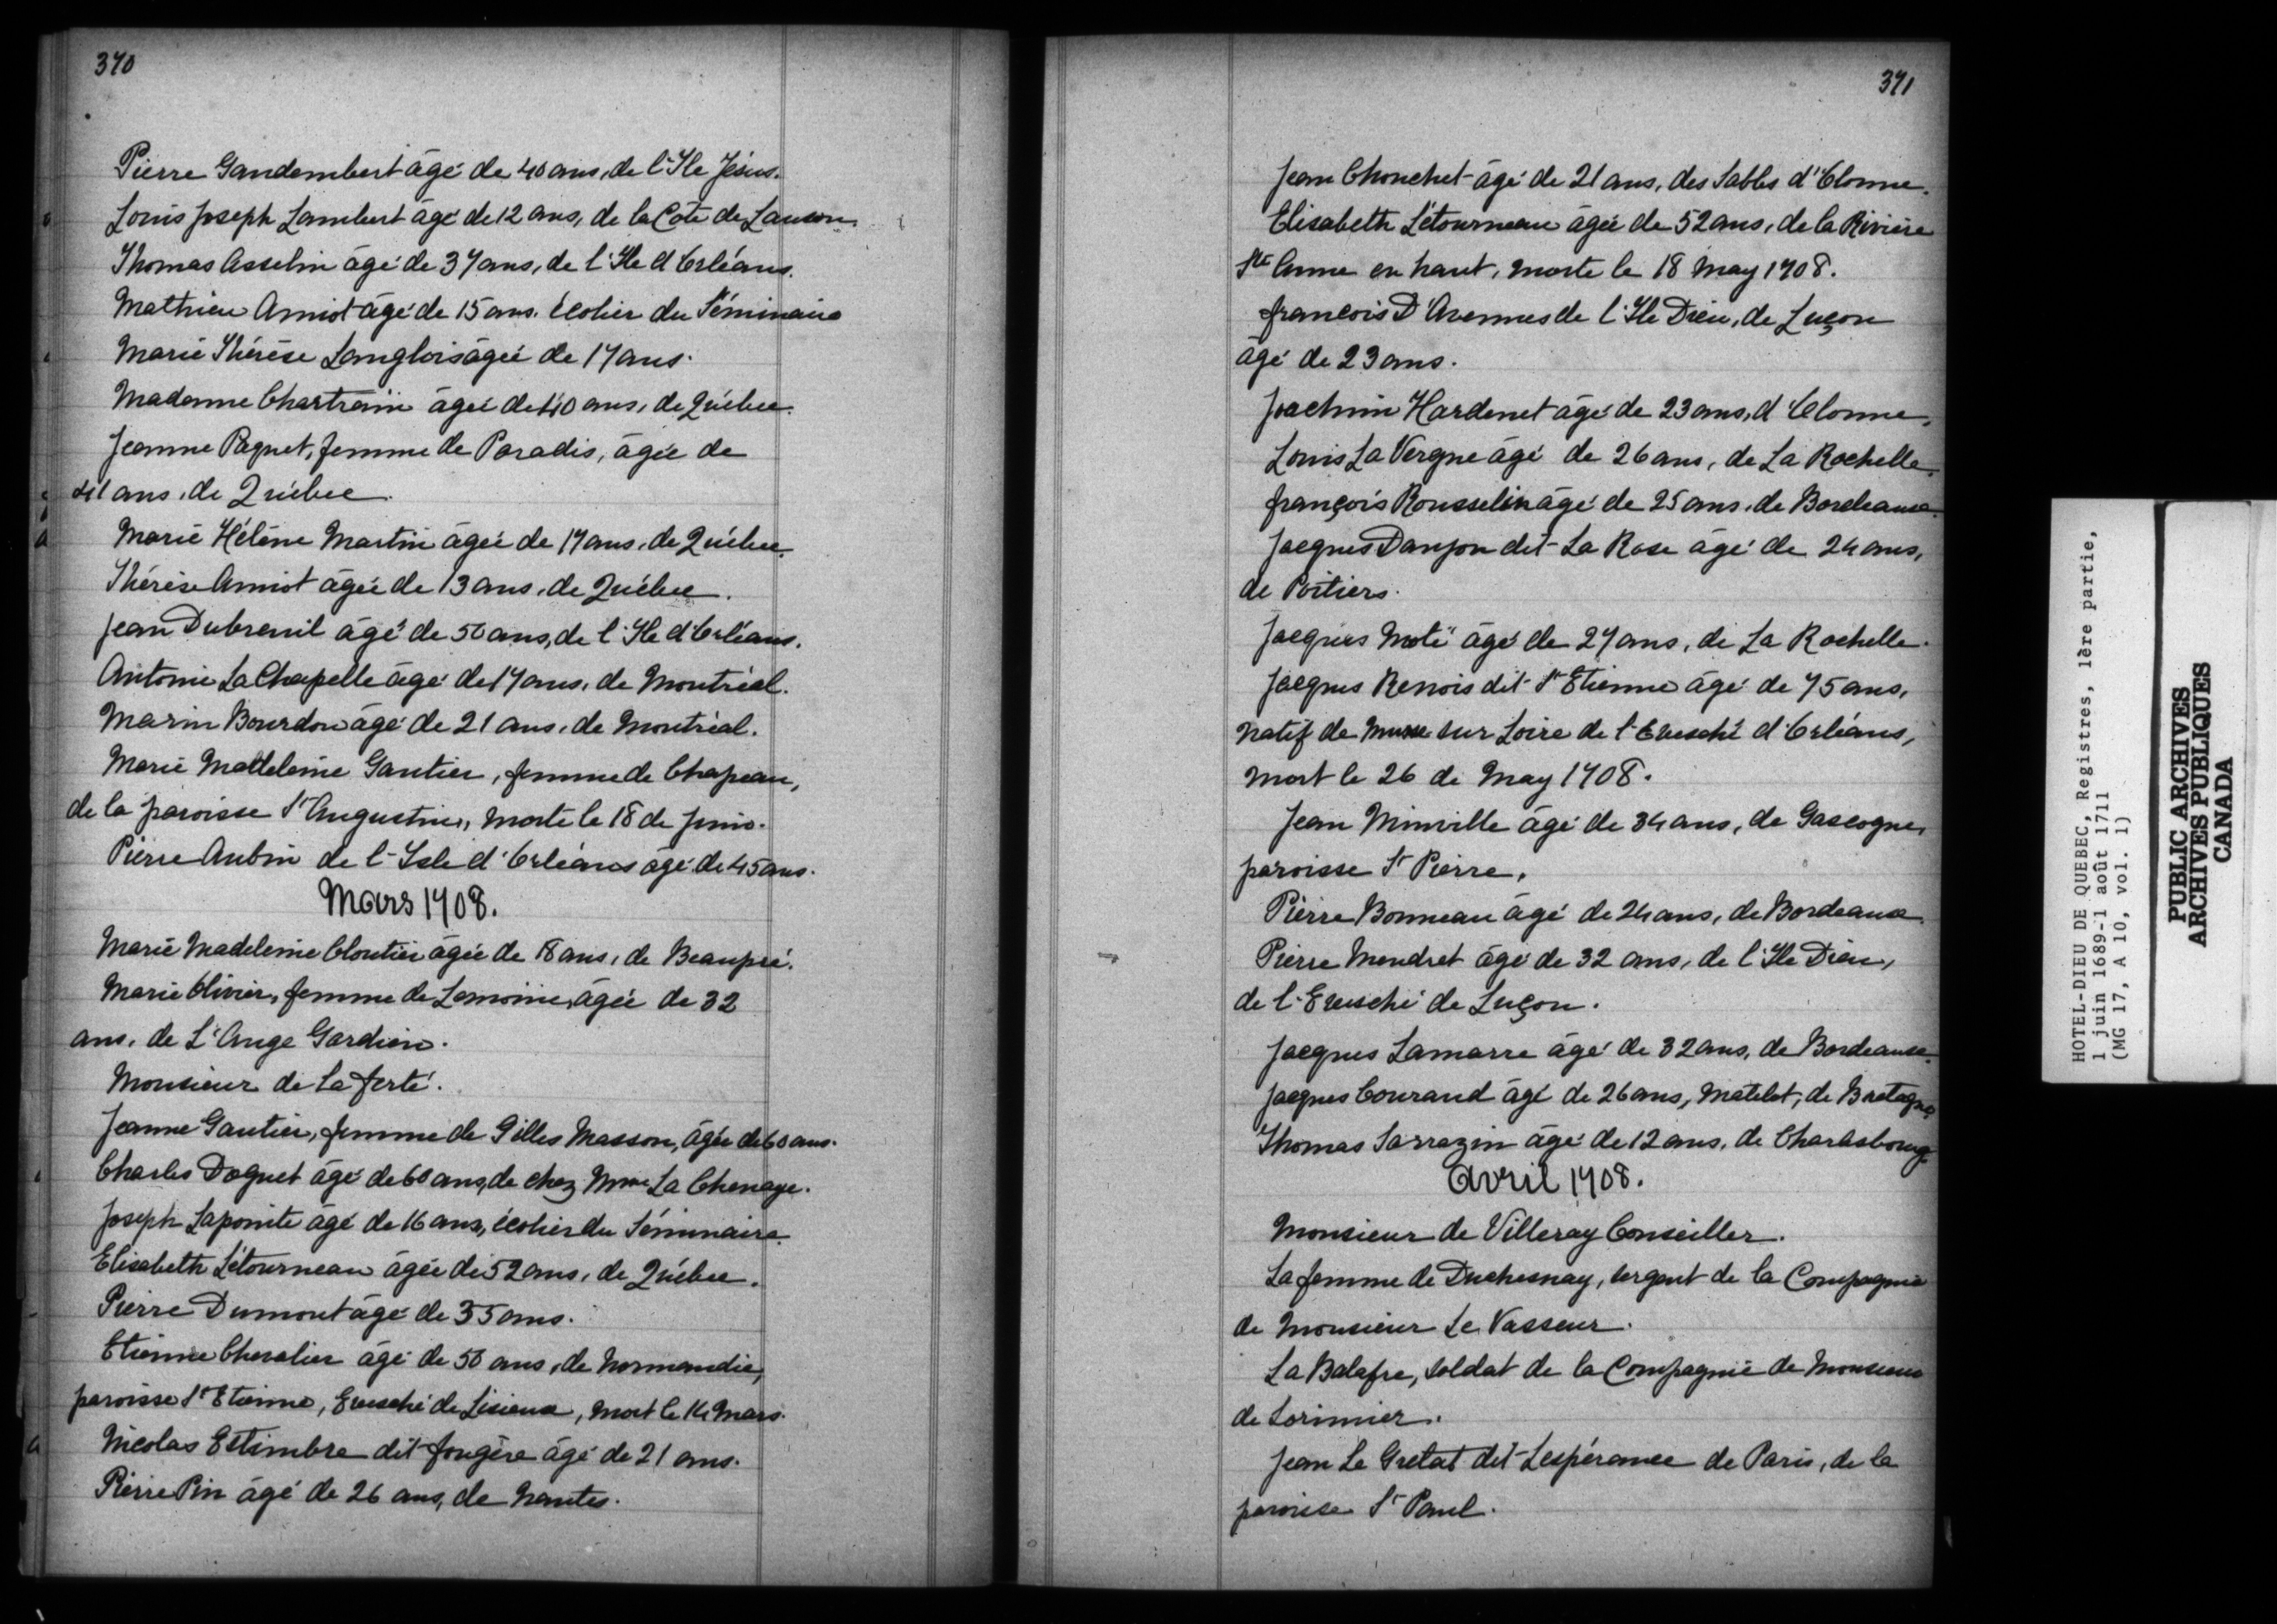 370
Pierre Gandembert âgé de 40 ans, de l'Ile Jésus.
Louis Joseph Lambert âgé de 12 ans, de la Côte de Lauson
Thomas Asselin âgé de 37 ans, de l'Ile d'Orléans.
Mathieu Amiot âgé de 15 ans. écolier du Séminaire
Marie Thérèse Langlois âgée de 17 ans.
Madame Chartrain âgée de 40 ans, de Québec.
Jeanne Paquet, femme de Paradis, âgée de
41 ans, de Québec.
Marie Hélène Martin âgée de 17 ans, de Québec.
Thérèse Amiot âgée de 13 ans, de Québec.
Jean Dubreuil âgé de 50 ans, de l'Ile d'Orléans.
Antoine La Chapelle âgé de 17 ans, de Montréal.
Marin Bourdon âgé de 21 ans, de Montréal.
Marie Madeleine Gautier, femme de Chapeau,
de la paroisse St Augustin, morte le 18 de Juin.
Pierre Aubin de l'Isle d'Orléans âgé de 45 ans.
Mars 1708.
Marie Madeleine Cloutier âgée de 18 ans, de Beaupré.
Marie Olivier, femme de Lemoine, âgée de 32
ans, de L'Ange Gardien.
Monsieur de la ferté.
Jeanne Gautier, femme de Gilles Masson, âgée de 60 ans.
Charles Doquet âgé de 60 ans, de chez Mme La Chenaye.
Joseph Lapointe âgé de 16 ans, écolier du Séminaire.
Elisabeth Létourneau âgée de 52 ans, de Québec.
Pierre Dumont âgé de 35 ans.
Etienne Chevalier âgé de 50 ans, de Normandie,
paroisse St Etienne, Evesché de Lisieux, mort le 14 Mars.
Nicolas Estimbre dit fougère âgé de 21 ans.
Pierre Pin âgé de 26 ans, de Nantes.
371
Jean Chouchet âgé de 21 ans, des Sables d'Olonne.
Elisabeth Létourneau âgée de 52 ans, de la Rivière
Ste Anne en haut, morte le 18 May 1708.
françois D'Avennes de l'Ile Dieu, de Luçon
âgé de 23 ans.
Joachim Hardenet âgé de 23 ans, d'Olonne,
Louis La Vergne âgé de 26 ans, de La Rochelle.
françois Rousselin âgé de 25 ans, de Bordeaux.
Jacques Danjon dit La Rose âgé de 24 ans,
de Poitiers.
Jacques Moté âgé de 27 ans, de La Rochelle.
Jacques Renois dit St Etienne âgé de 75 ans,
natif de sur Loire de l'Evesché d'Orléans,
mort le 26 de May 1708.
Jean Minville âgé de 34 ans, de Gascogne,
paroisse St Pierre,
Pierre Bonneau âgé de 24 ans, de Bordeaux.
Pierre Mendret âgé de 32 ans, de l'Ile Dieu,
de l'Evesché de Luçon.
Jacques Lamarre âgé de 32 ans, de Bordeaux.
Jacques Courand âgé de 26 ans, matelot, de Bretagne,
Thomas Sarrazin âgé de 12 ans, de Charlesbourg.
Avril 1708.
Monsieur de Villeray Conseiller.
La femme de Duchesnay, sergent de la Compagnie
de Monsieur Le Vasseur.
La Balafre, soldat de la Compagnie de Monsieur
de Lorimier.
Jean Le Gretat dit Lespérance de Paris, de la
paroisse St Paul.
HOTEL-DIEU DE QUEBEC, Registres, 1ère partie,
1 juin 1689-1 août 1711
(MG 17, A 10, vol. 1)
PUBLIC ARCHIVES
ARCHIVES PUBLIQUES
CANADA